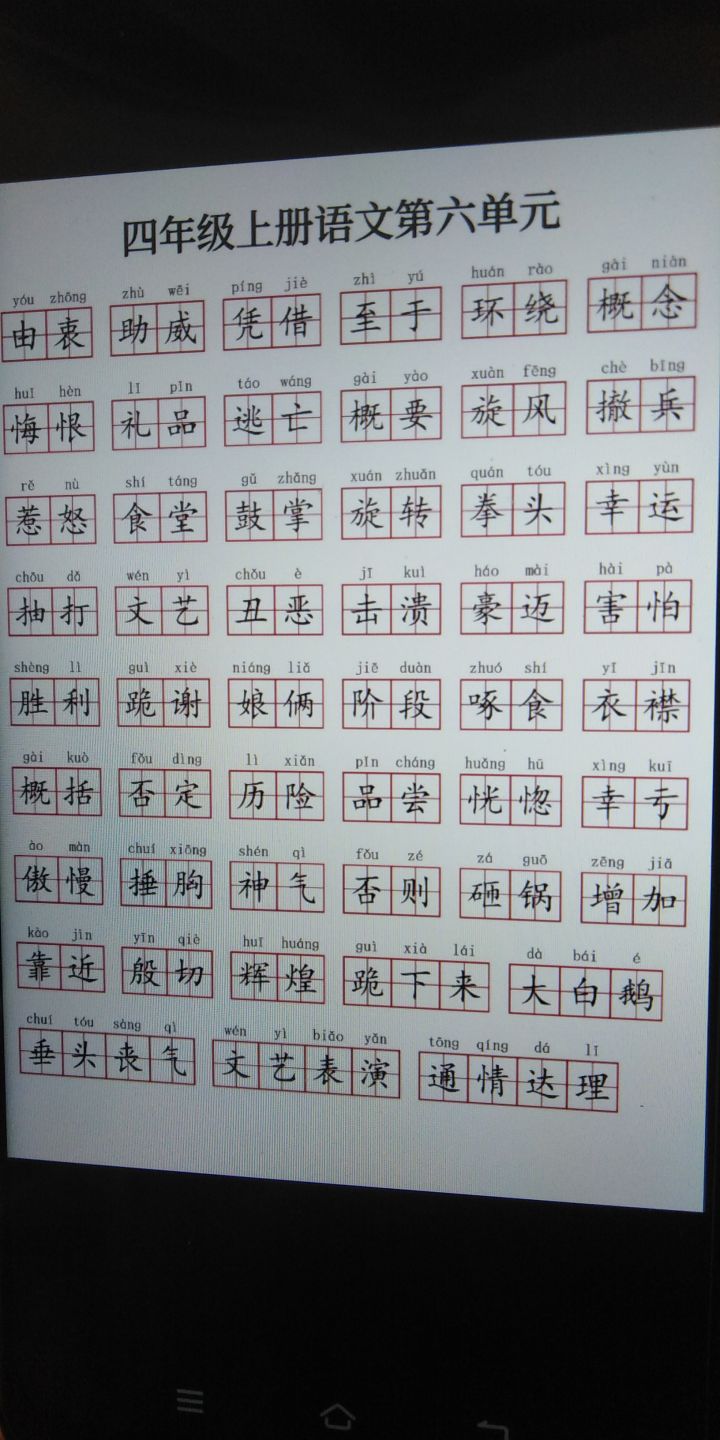 四年级上册语文第六单元
yóu zhōng zhù wēi píng jiè zhì yú huán rào gài niàn
由衷 助威 凭借 至于 环绕 概念
huǐ hèn lǐ pǐn táo wáng gài yào xuàn fēng chè bīng
悔恨 礼品 逃亡 概要 旋风 撤兵
rě nù shí táng gǔ zhǎng xuán zhuǎn quán tóu xìng yùn
惹怒 食堂 鼓掌 旋转 拳头 幸运
chōu dǎ wén yì chǒu è jī kuì háo mài hài pà
抽打 文艺 丑恶 击溃 豪迈 害怕
shèng lì guì xiè niáng liǎ jiē duàn zhuó shí yī jīn
胜利 跪谢 娘俩 阶段 啄食 衣襟
gài kuò fǒu dìng lì xiǎn pǐn cháng huǎng hū xìng kuī
概括 否定 历险 品尝 恍惚 幸亏
ào màn chuí xiōng shén qì fǒu zé zá guō zēng jiā
傲慢 捶胸 神气 否则 砸锅 增加
kào jìn yīn qiè huī huáng guì xià lái dà bái é
靠近 殷切 辉煌 跪下来 大白鹅
chuí tóu sàng qì wén yì biǎo yǎn tōng qíng dá lǐ
垂头丧气 文艺表演 通情达理